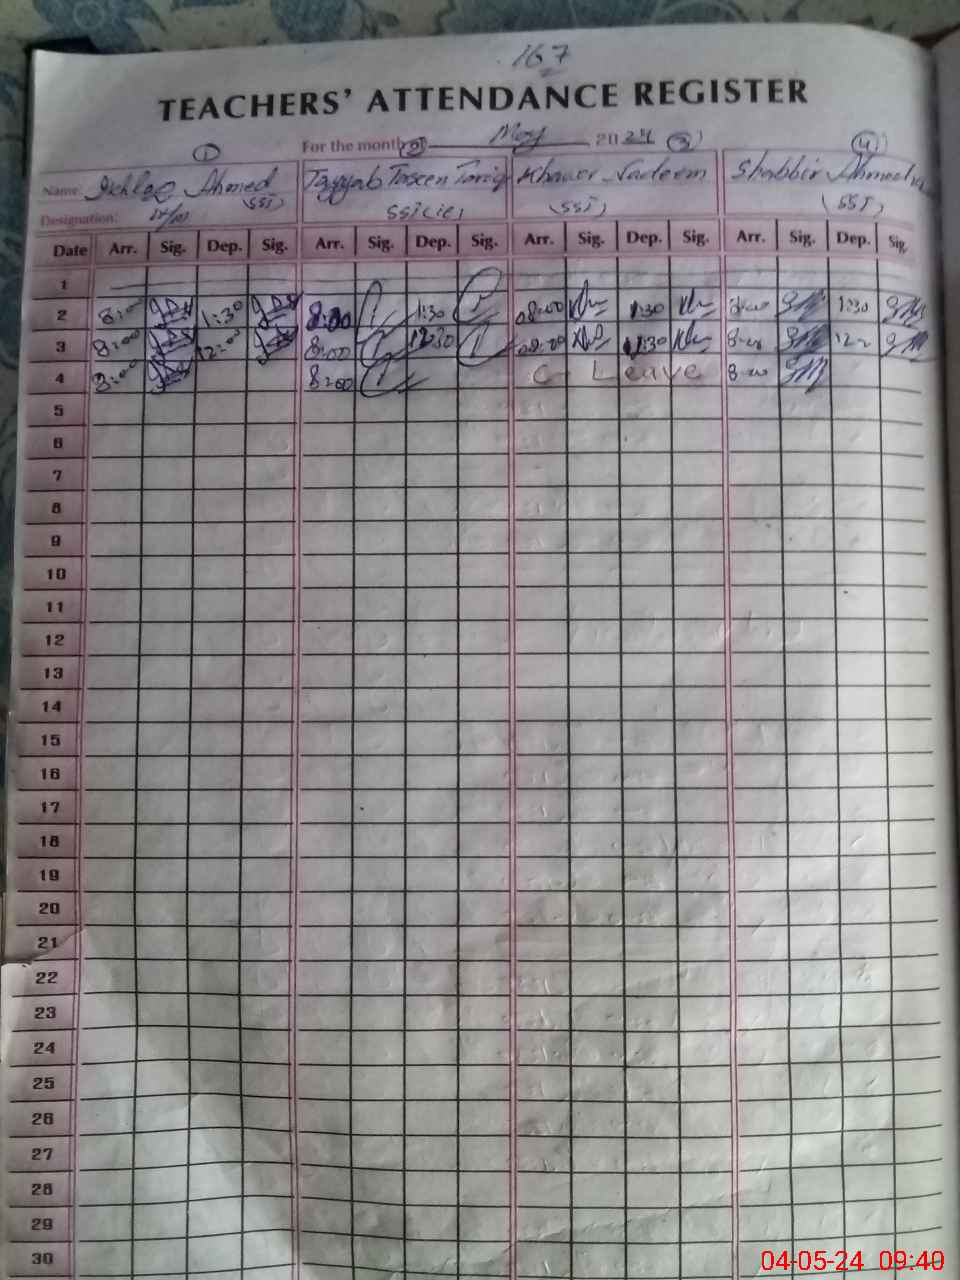 167
TEACHERS' ATTENDANCE REGISTER
For the month May 2024
① ② ③ ④
Name: Ikhlaq Ahmed Tayyab Taseen Tariq Khawer Nadeem Shabbir Ahmed
Designation: (SST) (SST) (SST)
Date Arr. Sig. Dep. Sig. Arr. Sig. Dep. Sig. Arr. Sig. Dep. Sig. Arr. Sig. Dep. Sig.
1
2 8:00 1:30 8:00 1:30 08:00 1:30 8:00 1:30
3 8:00 12:00 8:00 08:00
4 8:00 8:00 C- Leave 8:00
5
6
7
8
9
10
11
12
13
14
15
16
17
18
19
20
21
22
23
24
25
26
27
28
29
30
04-05-24 09:40